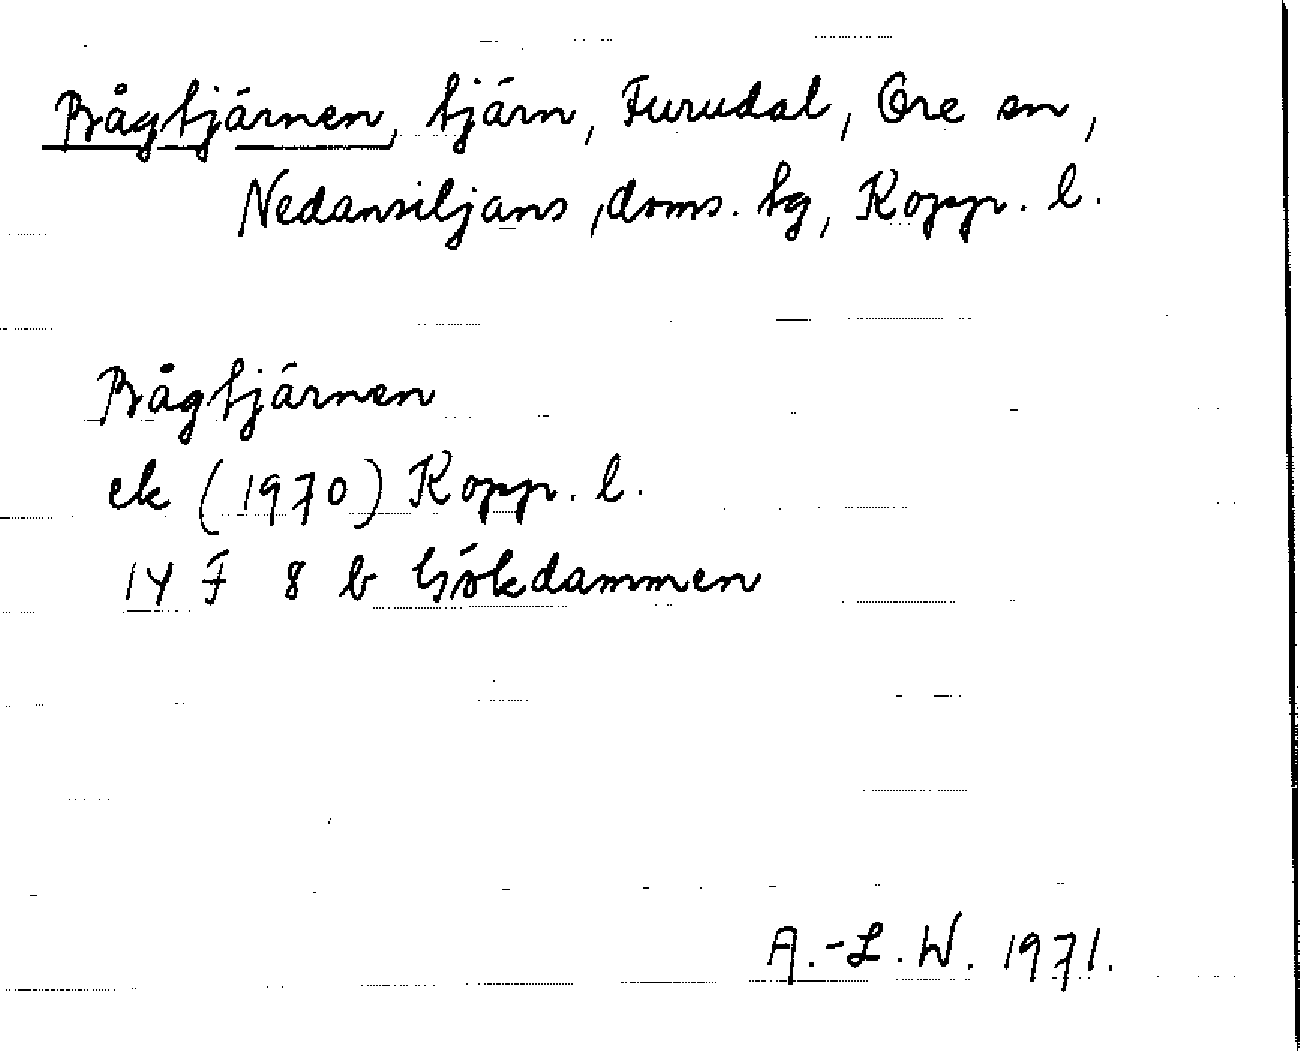 Bågtjärnen, tjärn, Furudal, Ore sn,
Nedansiljans, doms. tg, Kopp. l.
Bågtjärnen
ek (1970) Kopp. l.
14 F 8 b Gökdammen
A.-L. W. 1971.